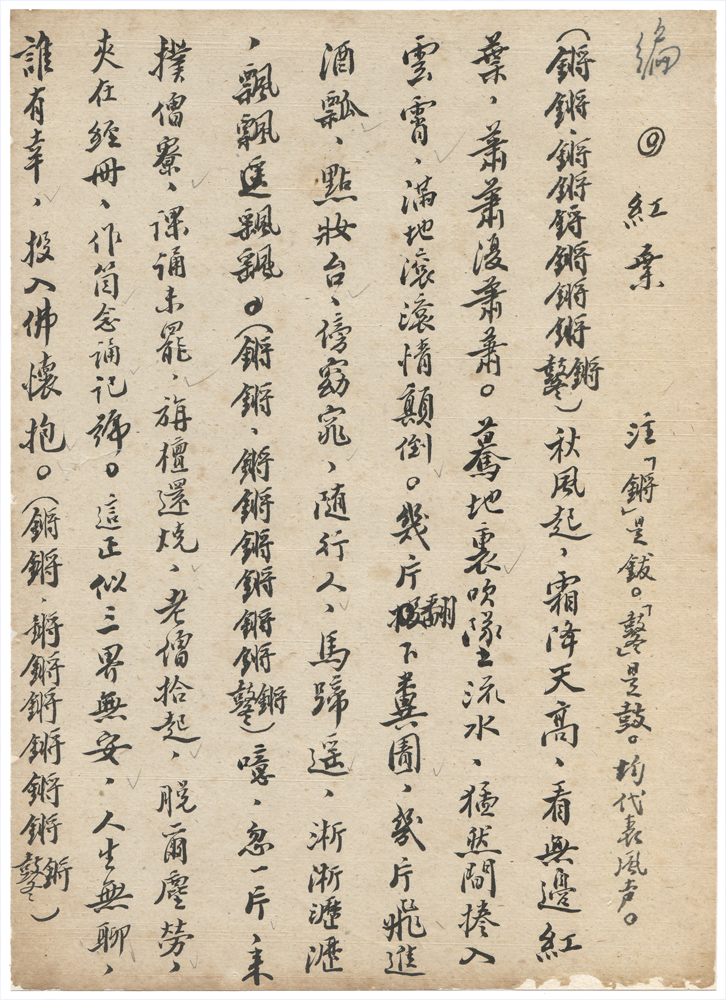 編
◎紅葉
注「鏘」是鈸。「鼕」是鼓。均代表風声。
（鏘鏘、鏘鏘鏘鏘鏘鏘鼕鏘）秋風起，霜降天高、看無邊紅
葉，蕭蕭復蕭蕭。驀地裏吹墬土流水、猛然間捲入
雲霄、滿地滾滾情顛倒。幾片翻下糞圊，幾片飛進
酒瓢、點妝台、傍窈窕、随行人、馬蹄遥、淅淅瀝瀝
、飄飄還飄飄。（鏘鏘、鏘鏘鏘鏘鏘鏘鼕鏘）噫，忽一片，来
撲僧寮，課誦未罷，旃檀還燒，老僧拾起，脱爾塵勞，
夾在經冊、作箇念誦記號。這正似三界無安，人生無聊，
誰有幸，投入佛懷抱。（鏘鏘、鏘鏘鏘鏘鏘鏘鼕鏘）